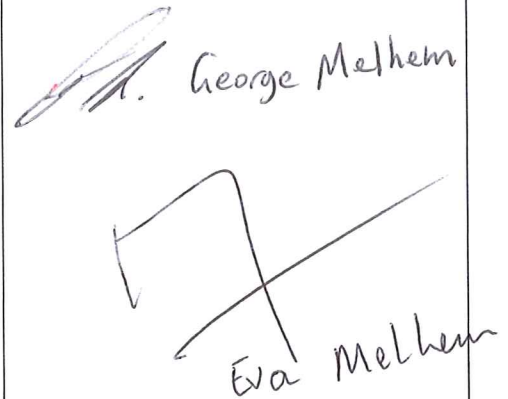 George Melhem
Eva Melhem